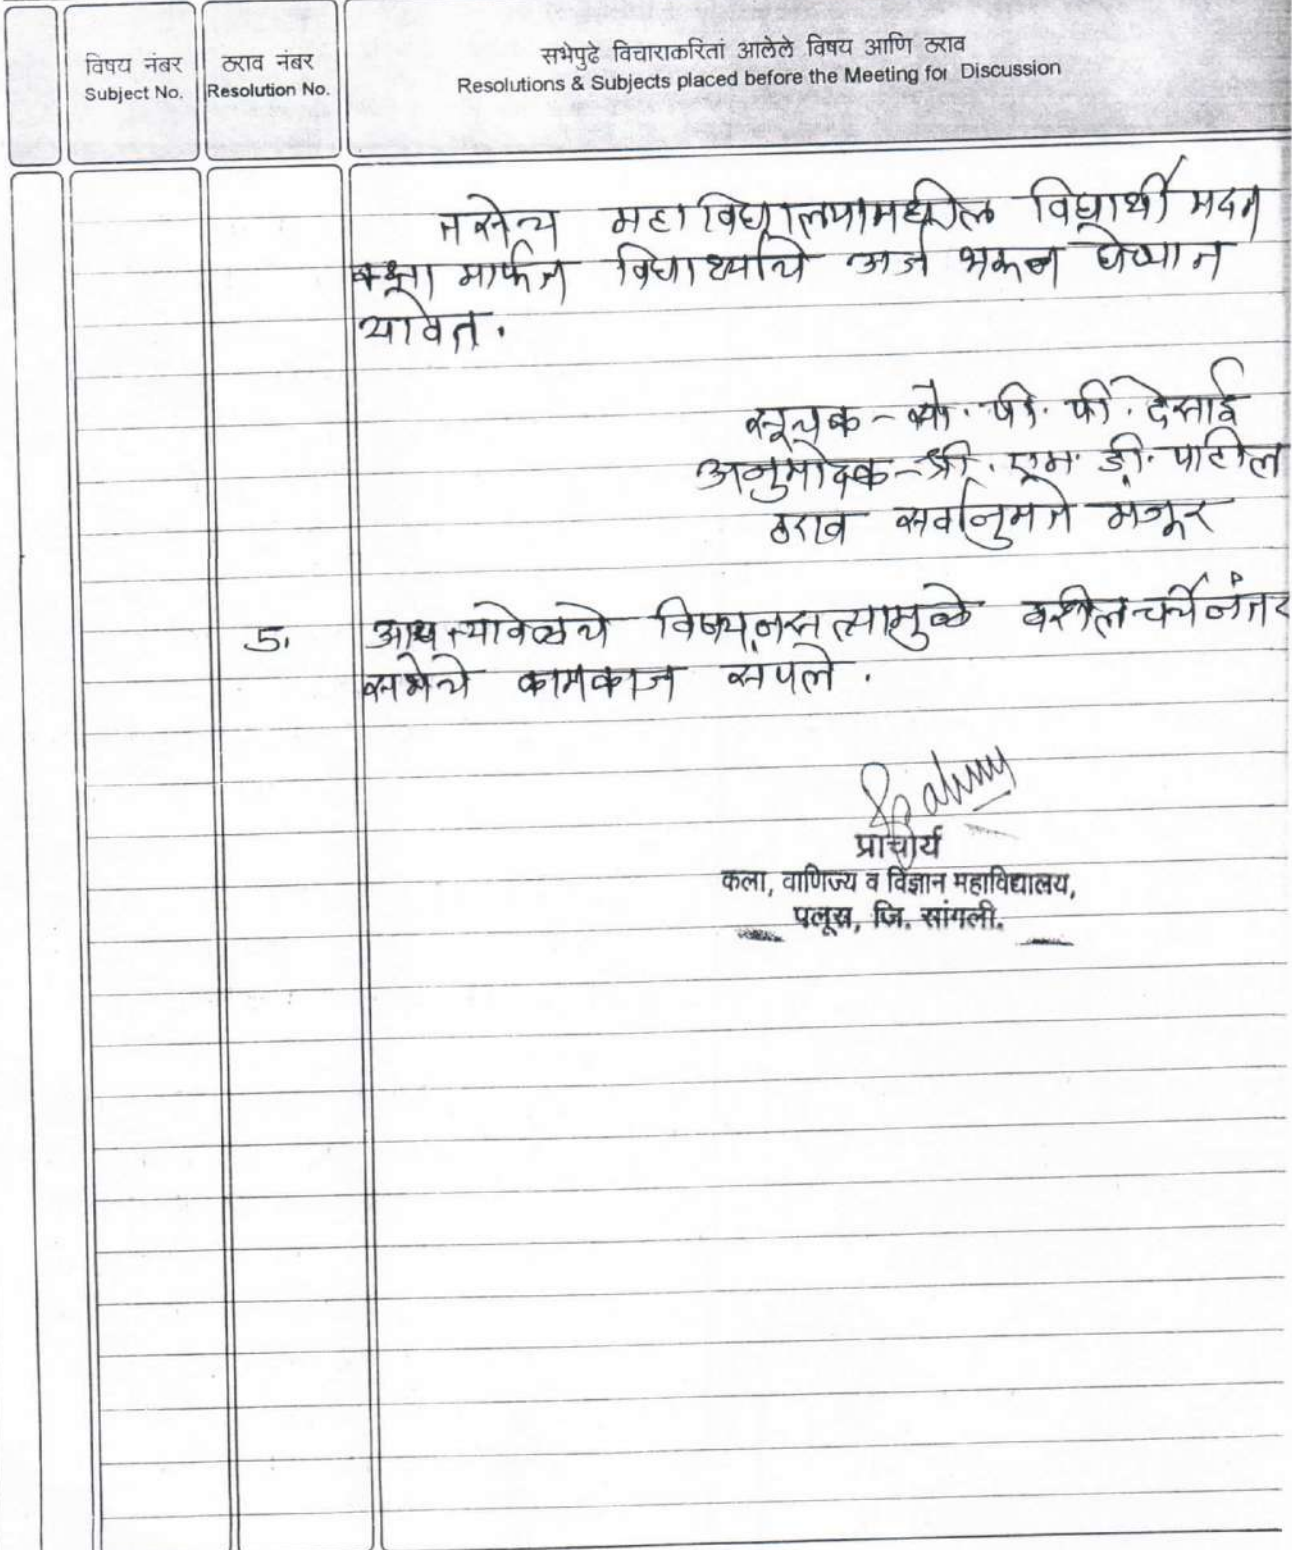 विषय नंबर
Subject No.
ठराव नंबर
Resolution No.
सभेपुढे विचाराकरितां आलेले विषय आणि ठराव
Resolutions & Subjects placed before the Meeting for Discussion
तसेच महाविद्यालयामधील विद्यार्थी मदत
कक्षा मार्फत विद्यार्थ्यांचे अर्ज भरून घेण्यात
यावेत.
सूचक - पी. देसाई
अनुमोदक - श्री. एम. डी. पाटील
ठराव सर्वानुमते मंजूर
5. आयत्यावेळचे विषय नसल्यामुळे वरील चर्चेनंतर
सभेचे कामकाज संपले.
प्राचार्य
कला, वाणिज्य व विज्ञान महाविद्यालय,
पलूस, जि. सांगली.